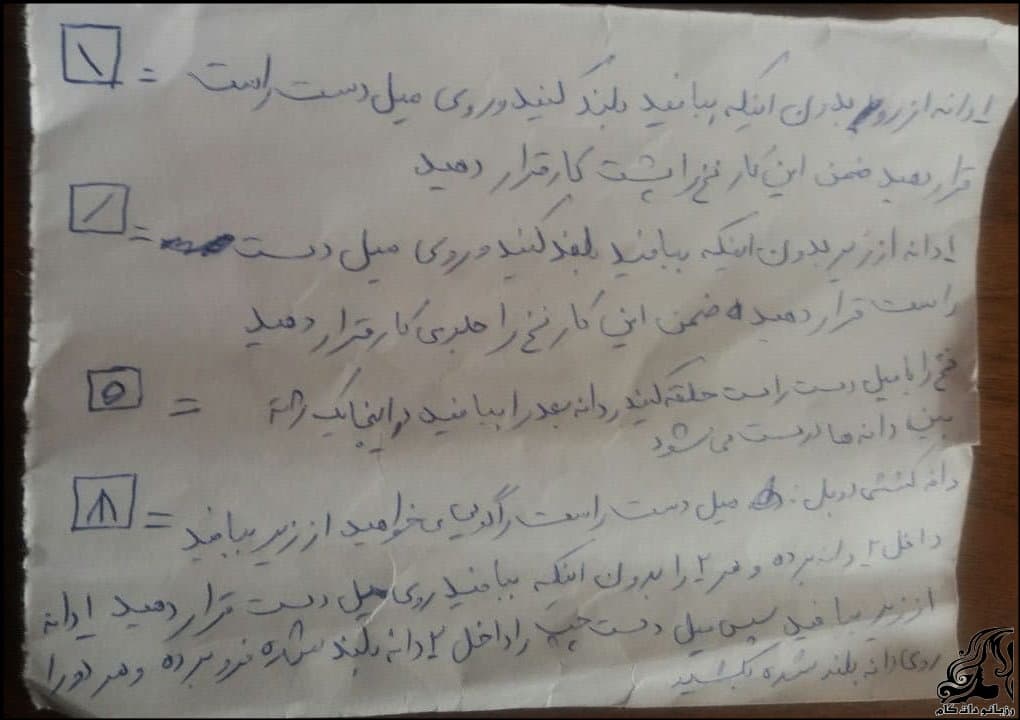 \ = ۱دانه از رو بدون اینکه ببافید بلند کنید و روی میل دست راست
قرار دهید ضمن این کار نخ را پشت کار قرار دهید
/ = ۱دانه از زیر بدون اینکه ببافید بلند کنید و روی میل دست
راست قرار دهید ضمن این کار نخ را جلوی کار قرار دهید
o = نخ را با میل دست راست حلقه کنید و دانه بعد را ببافید در اینجا یک ژاله
بین دانه ها درست می شود
دانه کششی دوبل : میل دست راست را گویی می خواهید از زیر ببافید
داخل ۲ دانه برده و هر ۲ را بدون اینکه ببافید روی میل دست قرار دهید ۱دانه
از زیر ببافید سپس میل دست چپ را داخل ۲دانه بلند شده فرو برده و هر دو را
روی دانه بلند شده بکشید
رزبانو دات کام